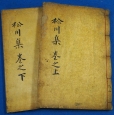 松川集 卷之上
松川集 卷之下